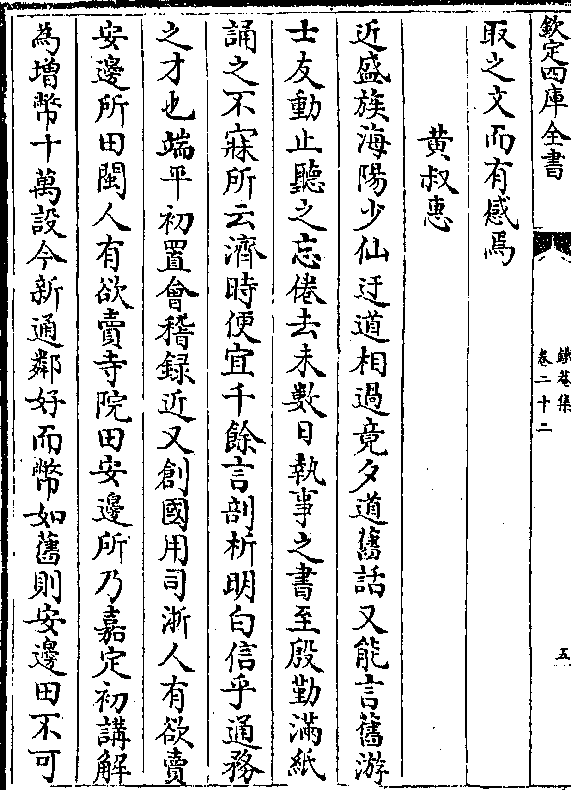 欽定四庫全書
鐵菴集
卷二十二
五
取之文而有感焉
黄叔惠
近盛族海陽少仙迂道相過竟夕道舊話又能言舊游
士友動止聽之忘倦去未數日執事之書至殷勤滿紙
誦之不寐所云濟時便宜千餘言剖析明白信乎通務
之才也端平初置會稽録近又創國用司浙人有欲賣
安邊所田閩人有欲賣寺院田安邊所乃嘉定初講解
為增幣十萬設今新通鄰好而幣如舊則安邊田不可